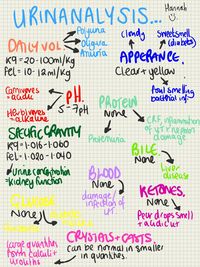 URINANALYSIS...
Hannah
DAILY VOL
Polyuria
Oliguria
Anuria
K9 = 20-100ml/kg
Fel = 10-12ml/kg
Cloudy
Sweet smell
(diabetes)
APPERANCE.
Clear + yellow
foul smelling
bacterial inf
Carnivores
= acidic
Herbivores
= alkaline
PH.
5-7pH
PROTEIN
None
Proteinuria
CRF, inflammation
of
SPECIFIC GRAVITY
K9 = 1.016-1.060
Fel = 1.020-1.040
Urine concentration
+ kidney function
BILE
None
Liver
disease
BLOOD
None
damage/
infection of
UT
GLUCOSE
None
KETONES.
None
Pear drops smell
+ acidic ur
CRYSTALS + CASTS
Can be normal in smaller
quantities
large quantities
form calculi +
uroliths